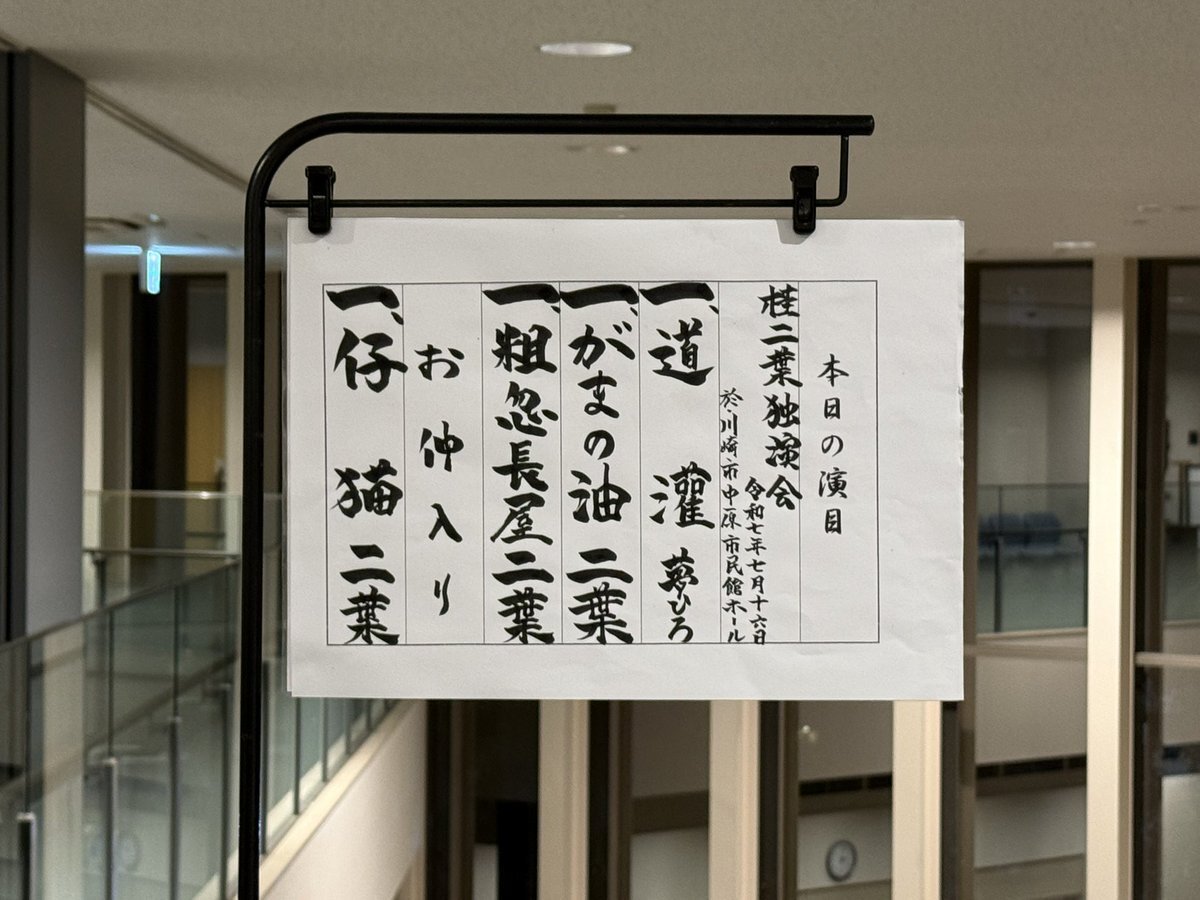 本日の演目
桂二葉独演会
令和七年七月十六日
於・川崎市中原市民館ホール
一、道灌 夢ひろ
一、がまの油 二葉
一、粗忽長屋 二葉
お仲入り
一、仔猫 二葉